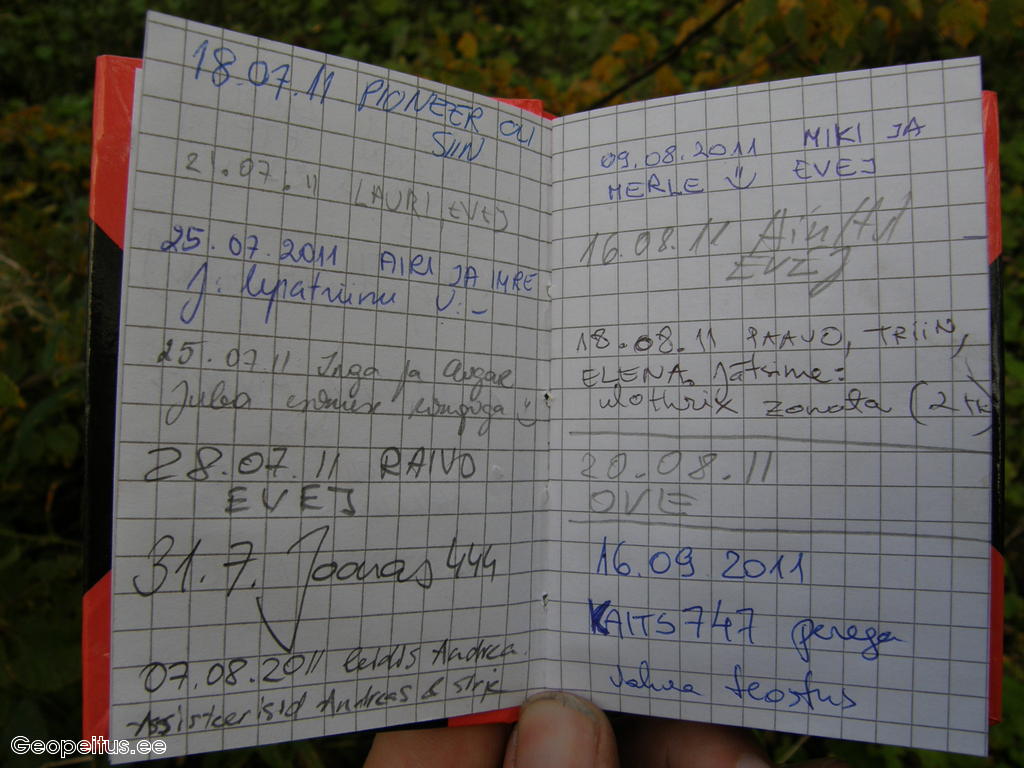 18.07.11 PIONEER OLI
SIIN
21.07.11 LAURI EVEJ
25.07.2011 AIRI JA IMRE
J:
25.07.11 Inga ja Ausar
28.07.11 RAIVO
EVEJ
31.7. Joonas444
07.08.2011 leidis Andrea.
Assisteerisid Andreas &
09.08.2011 MIKI JA
MERLE Ü EVEJ
16.08.11
EVEJ
18.08.11 PAAVO, TRIIN,
ELENA. Jätsime:
ulothrix zonata (2 tk)
20.08.11
OVE
16.09 2011
KAITS747 perega
Vahva teostus
Geopeitus.ee